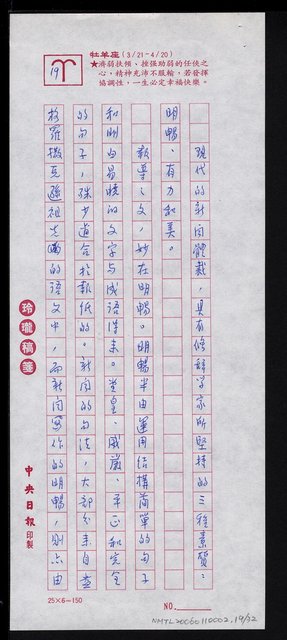 19
牡羊座(3/21-4/20)
★濟弱扶傾、挫强助弱的任俠之心,精神充沛不服輸,若發揮協調性,一生必定幸福快樂。
現代的新聞體裁,具有修辭學家所堅持的三種素質:
明暢、有力和美。
報導之文,妙在明暢。明暢半由運用結構簡單的句子
和明白易曉的文字與成語得來。堂皇、威嚴、平正和完全
的句子,殊少適合於報紙的。新聞的句法,大部分來自盎
格羅撒克遜祖先的語文中,而新聞寫作的明暢,則亦由
玲瓏稿箋
中央日報印製
25×6=150
NO.
NMTL20060110002.19/32